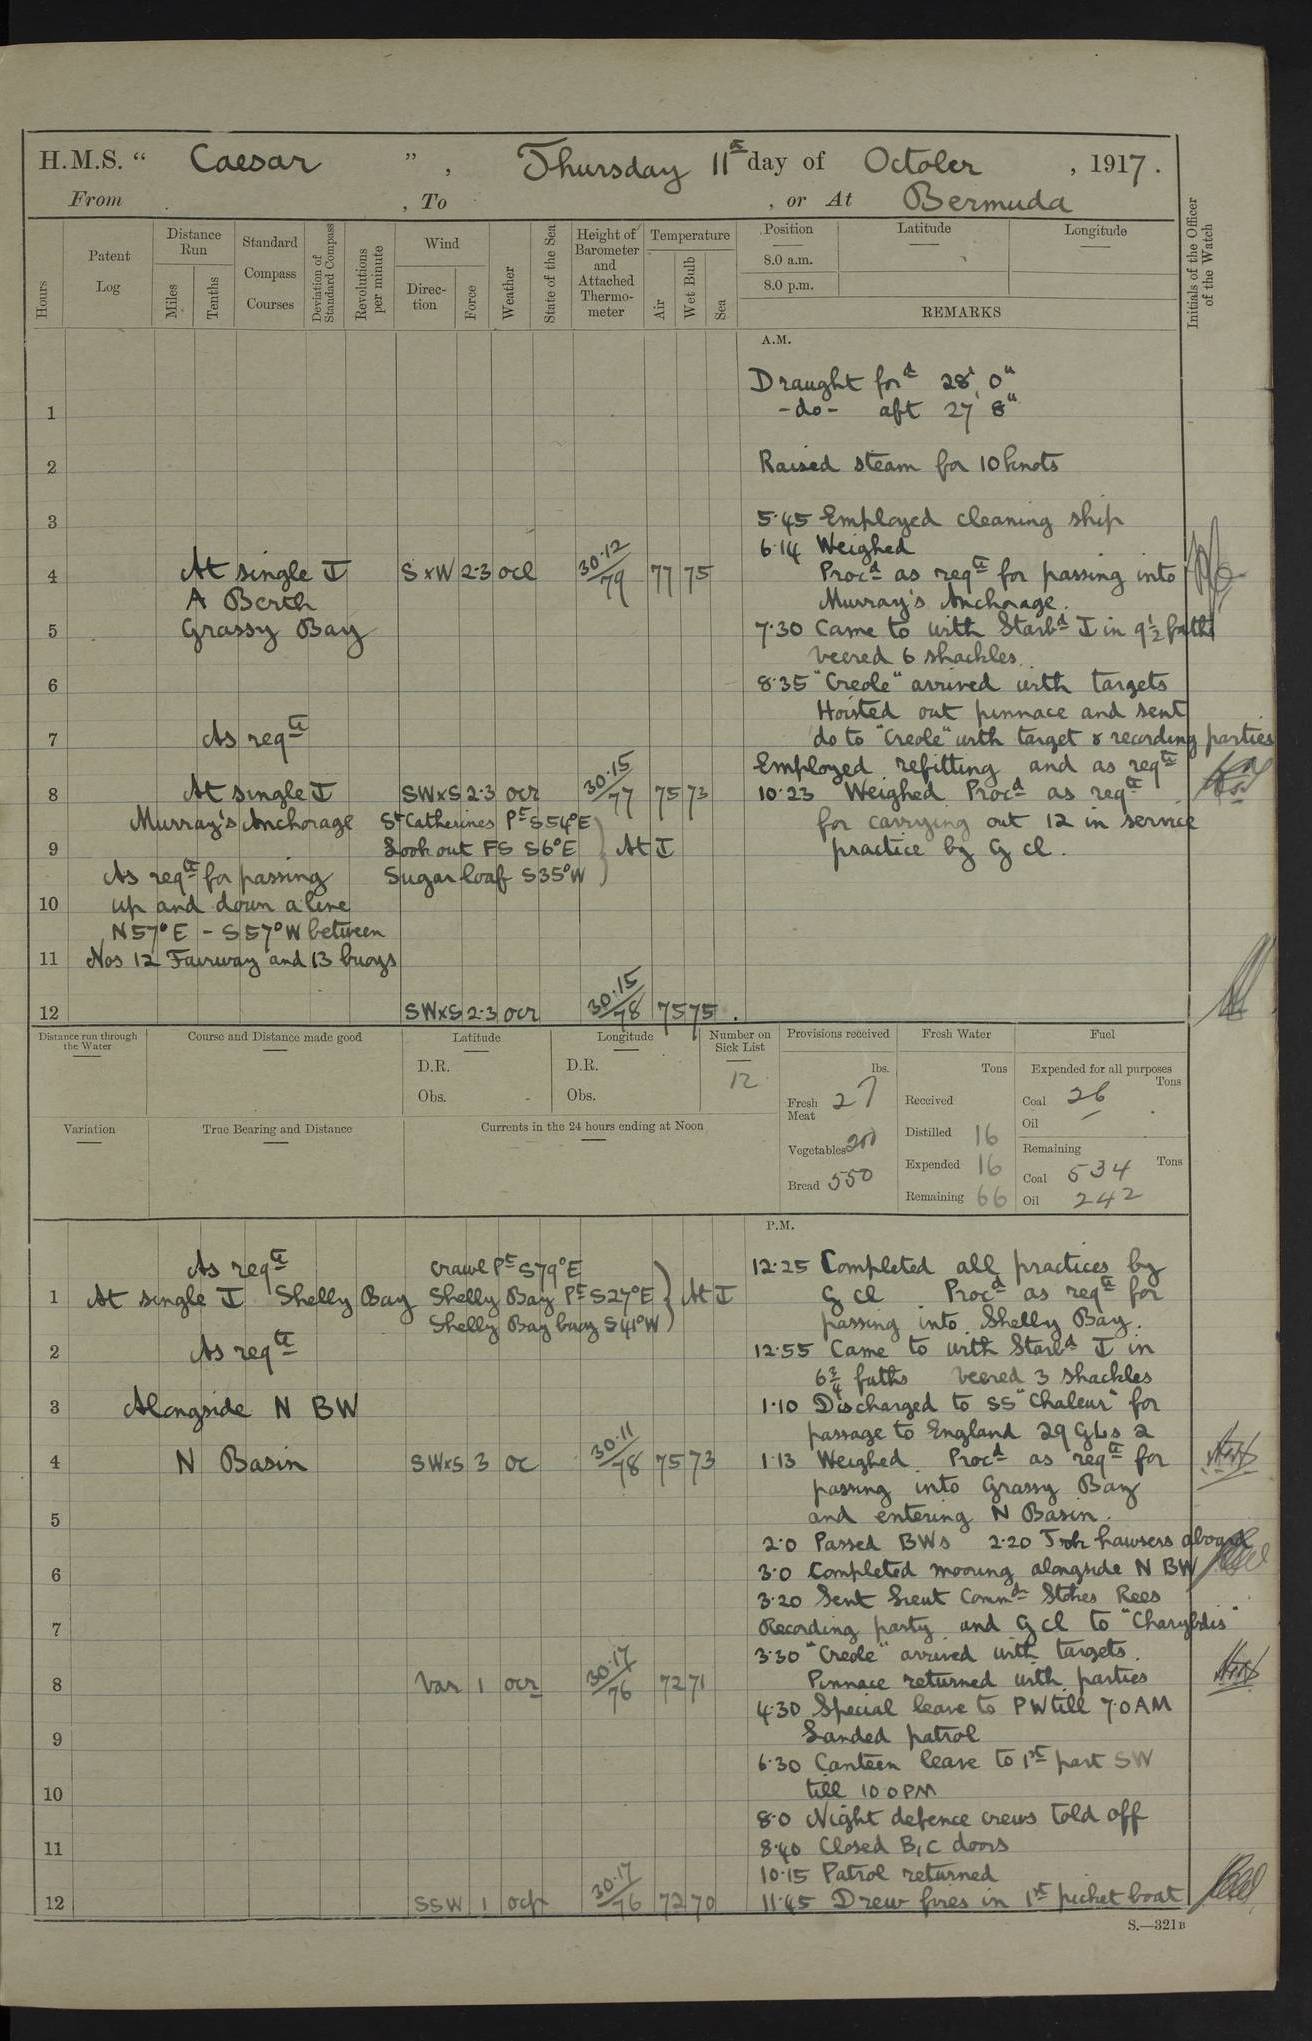 H.M.S. “ Caesar ”, Thursday 11th day of October, 1917.
From , To , or At Bermuda
Hours
Patent Log
Distance Run
Miles
Tenths
Standard Compass Courses
Deviation of Standard Compass
Revolutions per minute
Wind
Direction
Force
Weather
State of the Sea
Height of Barometer and Attached Thermometer
Temperature
Air
Wet Bulb
Sea
Position
8.0 a.m.
8.0 p.m.
Latitude
Longitude
REMARKS
Initials of the Officer of the Watch
A.M.
Draught ford 28' 0"
-do- aft 27' 8"
1
2 Raised steam for 10 knots
3 5.45 Employed cleaning ship
6.14 Weighed
4 At single ⚓ S x W 2.3 ocl 30.12/79 77 75 Procd as reqte for passing into
A Berth Murray's Anchorage.
5 Grassy Bay 7.30 Came to with Starbd ⚓ in 9½ faths
veered 6 shackles.
6 8.35 "Creole" arrived with targets
Hoisted out pinnace and sent
7 As reqte do to "Creole" with target & recording parties
Employed refitting and as reqte
8 At single ⚓ SWxS 2.3 ocr 30.15/77 75 73 10.23 Weighed Procd as reqte
Murray's Anchorage St Catherines Pt S54°E for carrying out 12 in service
9 Look out FS S6°E } At ⚓ practice by G cl.
As reqte for passing Sugar loaf S35°W
10 up and down a line
N57°E - S57°W between
11 Nos 12 Fairway and 13 buoys
12 SWxS 2.3 ocr 30.15/78 75 75
Distance run through the Water
Course and Distance made good
Latitude
D.R.
Obs.
Longitude
D.R.
Obs.
Number on Sick List
12
Provisions received
lbs.
Fresh Meat 27
Vegetables 200
Bread 550
Fresh Water
Tons
Received
Distilled 16
Expended 16
Remaining 66
Fuel
Expended for all purposes
Tons
Coal 26
Oil –
Remaining
Tons
Coal 534
Oil 242
Variation
True Bearing and Distance
Currents in the 24 hours ending at Noon
P.M.
As reqte Crawl Pt S79°E 12.25 Completed all practices by
1 At single ⚓ Shelly Bay Shelly Bay Pt S27°E } At ⚓ G cl Procd as reqte for
Shelly Bay buoy S41°W passing into Shelly Bay.
2 As reqte 12.55 Came to with Starbd ⚓ in
6¾ faths veered 3 shackles
3 Alongside N BW 1.10 Discharged to SS "Chaleur" for
passage to England 29 GLs 2
4 N Basin SWxS 3 oc 30.11/78 75 73 1.13 Weighed Procd as reqte for
passing into Grassy Bay
5 and entering N Basin.
2.0 Passed BWs 2.20 Took hawsers aboard
6 3.0 Completed mooring alongside N BW
3.20 Sent Lieut Commdr Stokes Rees
7 Recording party and G cl to "Charybdis"
3.30 "Creole" arrived with targets.
8 Var 1 ocr 30.17/76 72 71 Pinnace returned with parties
4.30 Special leave to PW till 7.0 AM
9 Landed patrol
6.30 Canteen leave to 1st part SW
10 till 10 0 PM
8.0 Night defence crews told off
11 8.40 Closed B, C doors
10.15 Patrol returned
12 SSW 1 ocp 30.17/76 72 70 11.45 Drew fires in 1st picket boat
S.—321B